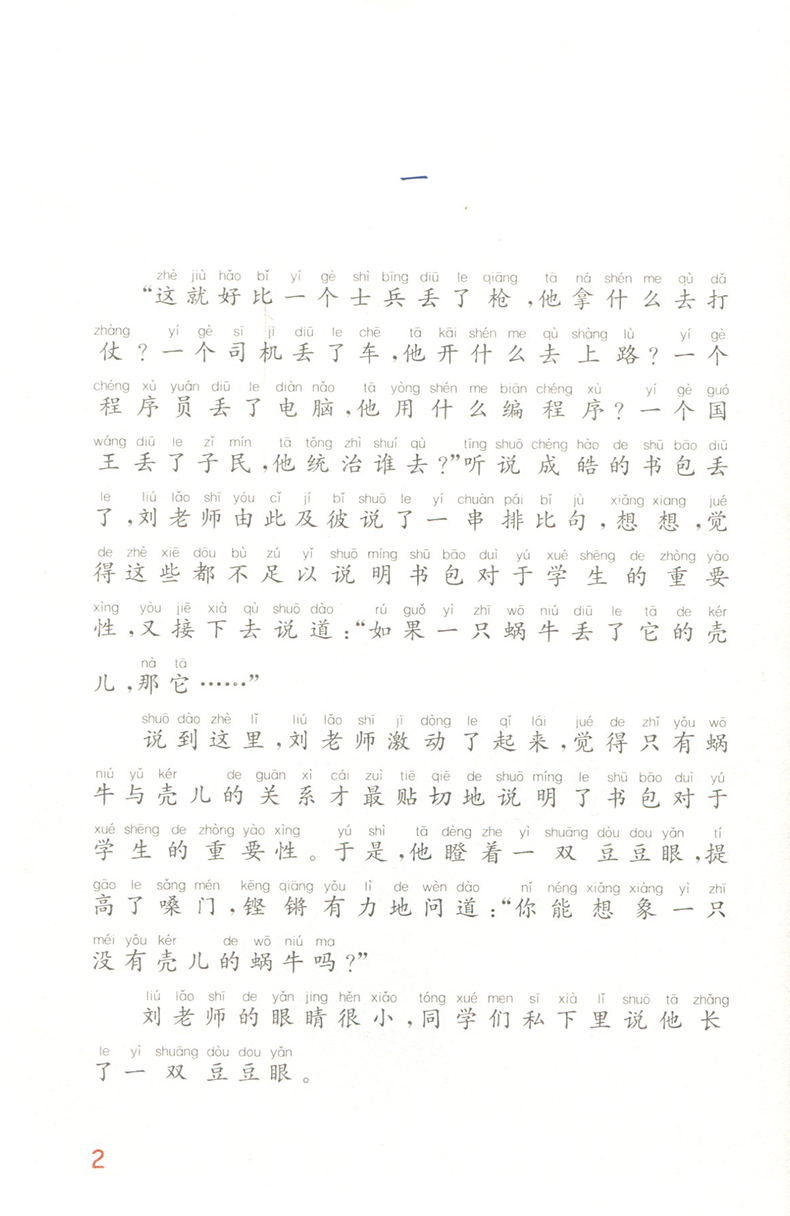 一
zhè jiù hǎo bǐ yí gè shì bīng diū le qiāng tā ná shén me qù dǎ
“这就好比一个士兵丢了枪,他拿什么去打
zhàng yí gè sī jī diū le chē tā kāi shén me qù shàng lù yí gè
仗?一个司机丢了车,他开什么去上路?一个
chéng xù yuán diū le diàn nǎo tā yòng shén me biān chéng xù yí gè guó
程序员丢了电脑,他用什么编程序?一个国
wáng diū le zǐ mín tā tǒng zhì shuí qù tīng shuō chéng hào de shū bāo diū
王丢了子民,他统治谁去?”听说成皓的书包丢
le liú lǎo shī yóu cǐ jí bǐ shuō le yí chuàn pái bǐ jù xiǎng xiang jué
了,刘老师由此及彼说了一串排比句,想想,觉
de zhè xiē dōu bù zú yǐ shuō míng shū bāo duì yú xué shēng de zhòng yào
得这些都不足以说明书包对于学生的重要
xìng yòu jiē xià qù shuō dào rú guǒ yì zhī wō niú diū le tā de kér
性,又接下去说道:“如果一只蜗牛丢了它的壳
nà tā
儿,那它……”
shuō dào zhè lǐ liú lǎo shī jī dòng le qǐ lái jué de zhǐ yǒu wō
说到这里,刘老师激动了起来,觉得只有蜗
niú yǔ kér de guān xì cái zuì tiē qiē de shuō míng le shū bāo duì yú
牛与壳儿的关系才最贴切地说明了书包对于
xué shēng de zhòng yào xìng yú shì tā dèng zhe yì shuāng dòu dou yǎn tí
学生的重要性。于是,他瞪着一双豆豆眼,提
gāo le sǎng mén kēng qiāng yǒu lì de wèn dào nǐ néng xiǎng xiàng yì zhī
高了嗓门,铿锵有力地问道:“你能想象一只
méi yǒu kér de wō niú ma
没有壳儿的蜗牛吗?”
liú lǎo shī de yǎn jing hěn xiǎo tóng xué men sī xià lǐ shuō tā zhǎng
刘老师的眼睛很小,同学们私下里说他长
le yì shuāng dòu dou yǎn
了一双豆豆眼。
2